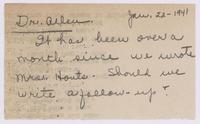 Jan. 22-1941
Dr. Allen
It has been over a
month since we wrote
Mrs. Houts. Should we
write a follow-up?